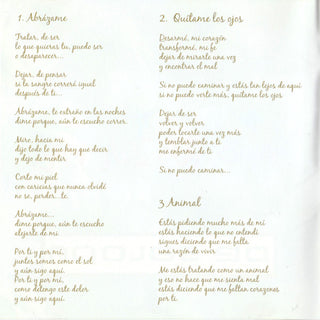 1. Abrázame
Tratar, de ser
lo que quieras tu, puede ser
o desaparecer...
Dejar, de pensar
si la sangre correrá igual
después de ti...
Abrázame, te extraño en las noches
dime porque, aún te escucho correr.
Mire, hacia mi
dije todo lo que hay que decir
y dejo de mentir
Corto mi piel
con caricias que nunca olvidé
no se, perder... te.
Abrázame...
dime porque, aún te escucho
alejarte de mi
Por ti y por mí,
juntos somos como el sol
y aún sigo aquí.
Por ti y por mí,
como detengo este dolor
y aún sigo aquí.
2. Quítame los ojos
Desarmé, mi corazón
transformé, mi fe
dejar de mirarte una vez
y encontrar el mal
Si no puedo caminar y estás tan lejos de aquí
si no puedo verte más, quítame los ojos
Dejar de ser
volver y volver
poder tocarte una vez más
y temblar junto a ti
me enfermé de ti
Si no puedo caminar...
3 Animal
Estás pidiendo mucho más de mí
estás haciendo lo que no entendí
sigues diciendo que me falta
una razón de vivir
Me estás tratando como un animal
y eso no hace que me sienta mal
estás diciendo que me faltan corazones
por ti